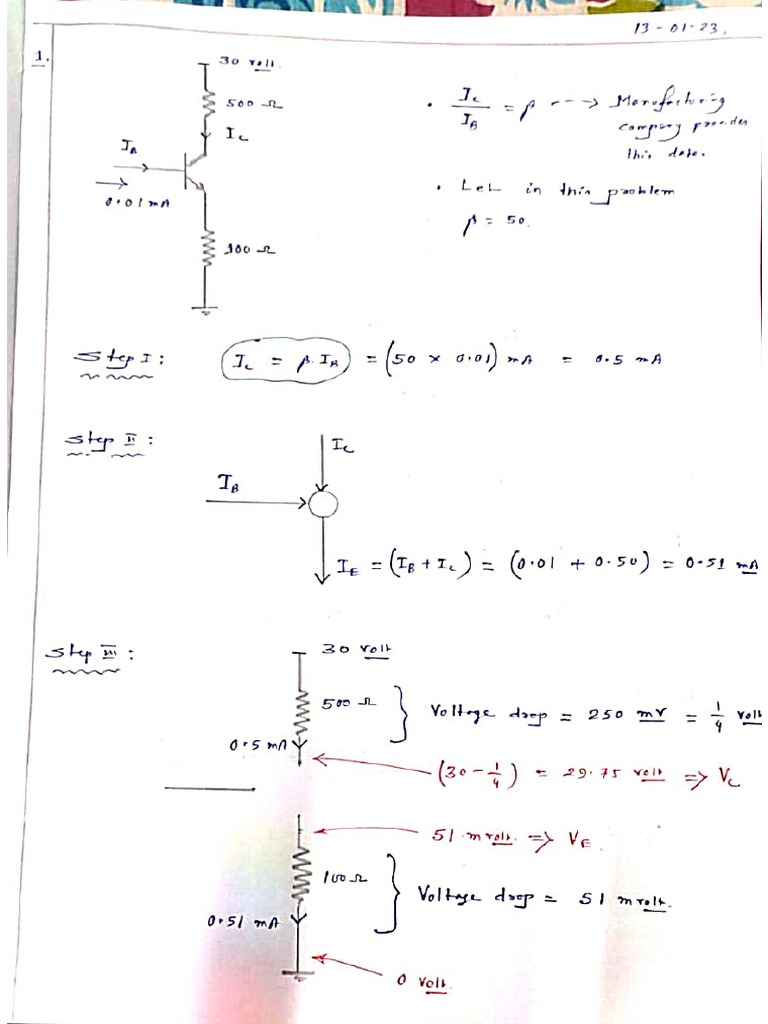 13-01-23.
1.
30 volt.
500 Ω
I_C
I_B
0.01 mA
100 Ω
• I_C / I_B = β ---> Manufacturing
company provides
this data.
• Let in this problem
β = 50.
Step I : I_C = β. I_B = (50 × 0.01) mA = 0.5 mA
Step II :
I_C
I_B
I_E = (I_B + I_C) = (0.01 + 0.50) = 0.51 mA
Step III :
30 volt
500 Ω } Voltage drop = 250 mv = 1/4 volt
0.5 mA
(30 - 1/4) = 29.75 volt => V_C
51 m volt. => V_E
100 Ω } Voltage drop = 51 m volt.
0.51 mA
0 volt.